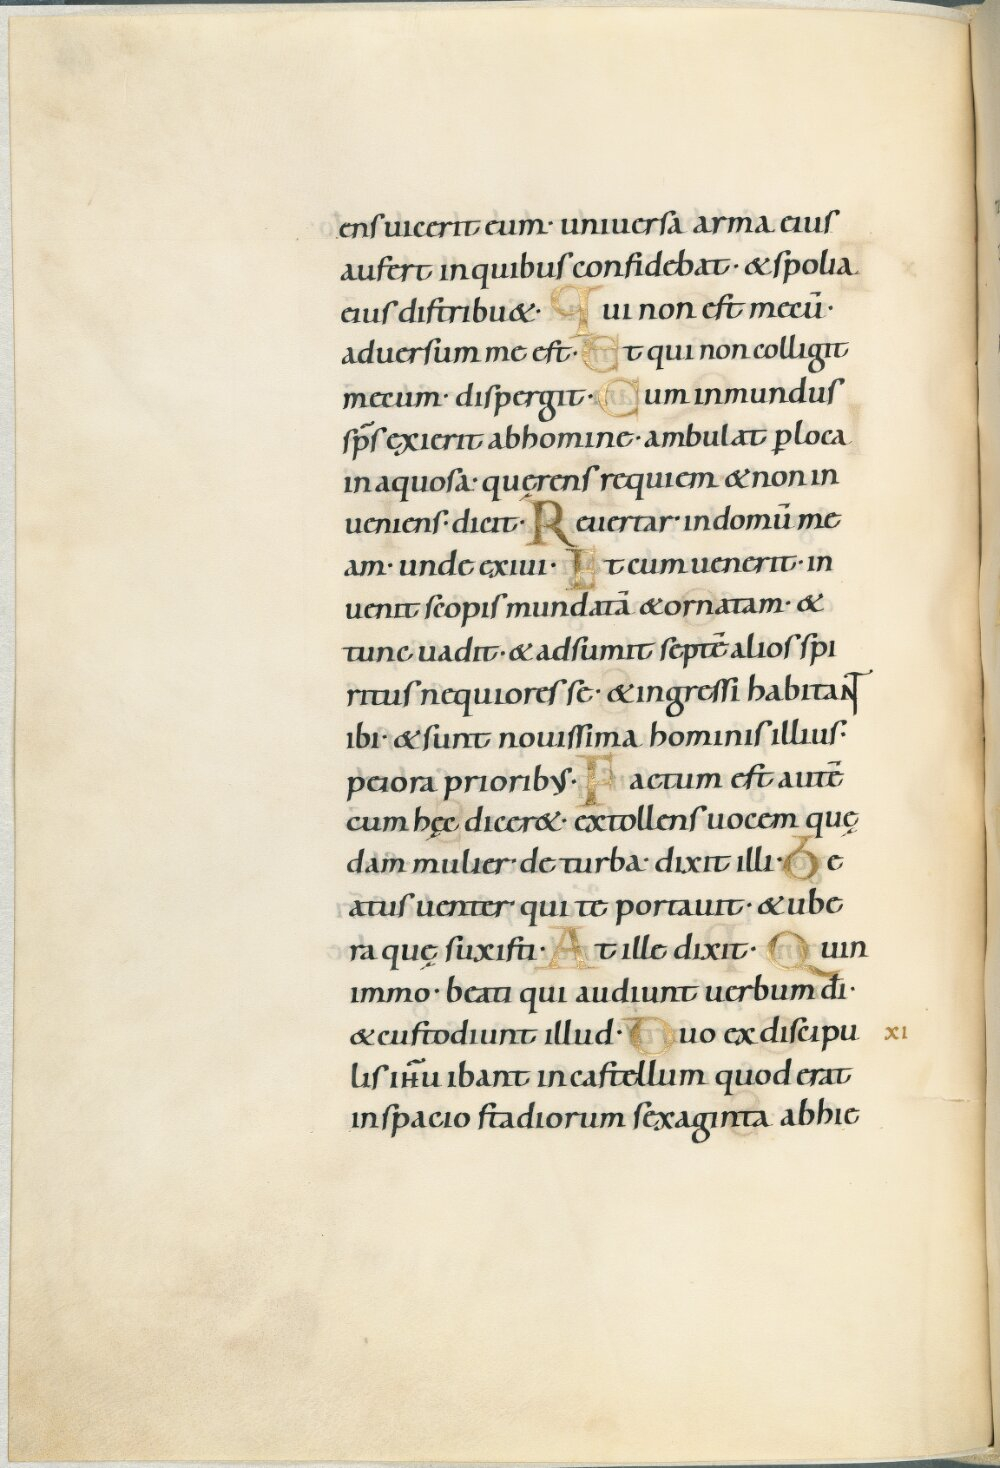 ens uicerit eum· universa arma eius
aufert in quibus confidebat· & spolia
eius distribu&· Qui non est mecū·
adversum me est· Et qui non colligit
mecum· dispergit· Cum inmundus
sp̄s exierit ab homine· ambulat ꝑ loca
inaquosa· quęrens requiem & non in
veniens· dicit· Revertar· in domū me
am· unde exiui· Et cum uenerit· in
uenit scopis mundatā & ornatam· &
tunc uadit· & adsumit septē alios spi
ritus nequiores se· & ingressi habitant
ibi· & sunt nouissima hominis illius·
peiora prioribus· Factum est autē
cum hęc dicer&· extollens uocem quę
dam mulier· de turba· dixit illi· Be
atus uenter qui te portauit· & ube
ra quę suxisti· At ille dixit· Quin
immo· beati qui audiunt uerbum dī·
& custodiunt illud· Duo ex discipu
lis iħu ibant in castellum quod erat
in spacio stadiorum sexaginta ab hie
xi